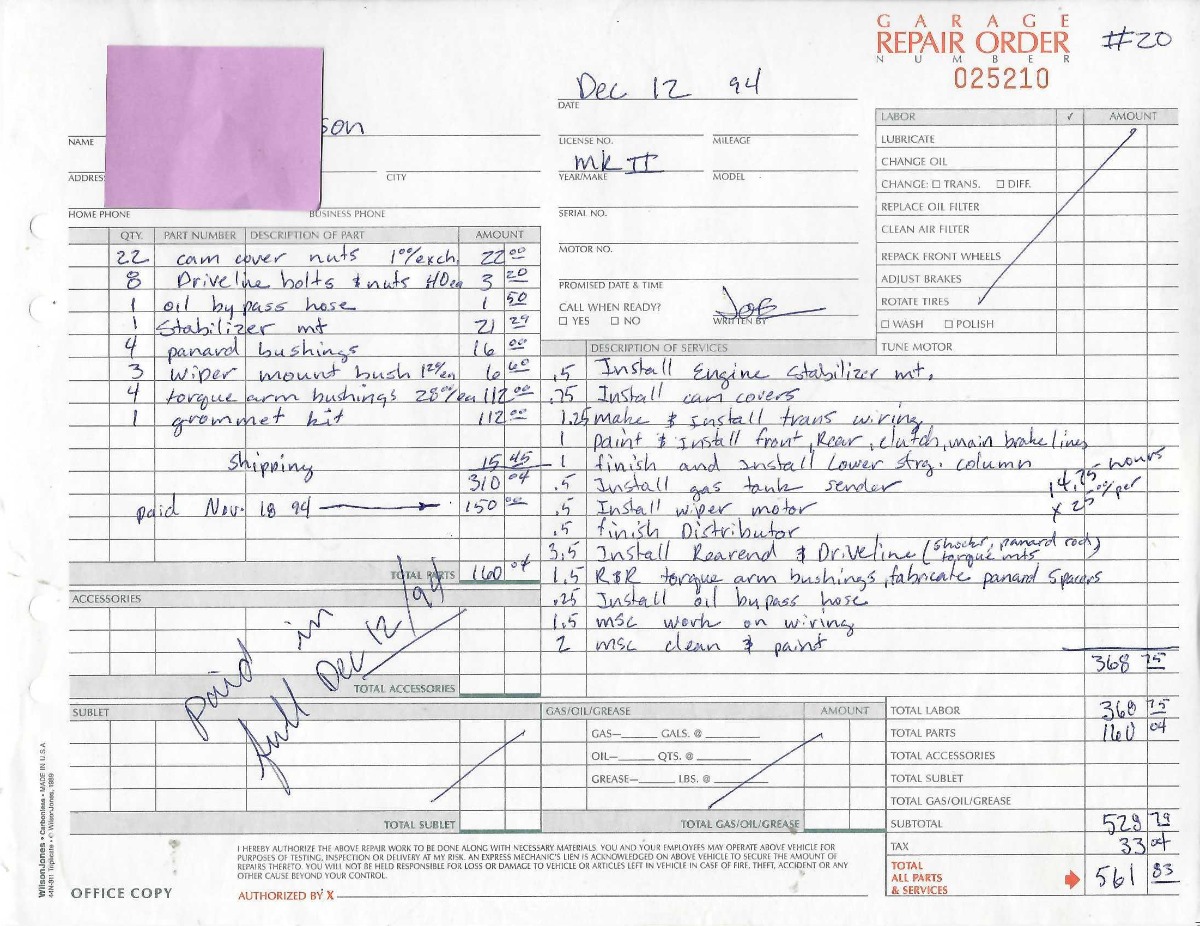 GARAGE
REPAIR ORDER
NUMBER
#20
025210
Dec 12 94
DATE
son
NAME
LICENSE NO. MILEAGE
mk II
ADDRES CITY
YEAR/MAKE MODEL
HOME PHONE BUSINESS PHONE
SERIAL NO.
MOTOR NO.
PROMISED DATE & TIME
CALL WHEN READY?
☐ YES ☐ NO
Joe
WRITTEN BY
LABOR ✓ AMOUNT
LUBRICATE
CHANGE OIL
CHANGE: ☐ TRANS. ☐ DIFF.
REPLACE OIL FILTER
CLEAN AIR FILTER
REPACK FRONT WHEELS
ADJUST BRAKES
ROTATE TIRES
☐ WASH ☐ POLISH
TUNE MOTOR
QTY. PART NUMBER DESCRIPTION OF PART AMOUNT
22 cam cover nuts 1 00/exch 22 00
8 Driveline bolts & nuts 40 ea 3 20
1 oil by pass hose 1 50
1 Stabilizer mt 21 29
4 panard bushings 16 00
3 wiper mount bush ea 6 60
4 torque arm bushings 28 00/ea 112 00
1 grommet kit 112 00
Shipping 15 45
310 04
paid Nov. 18 94 150 00
TOTAL PARTS 160 04
ACCESSORIES
TOTAL ACCESSORIES
paid in
full Dec 12/94
SUBLET
TOTAL SUBLET
DESCRIPTION OF SERVICES
.5 Install Engine stabilizer mt.
.75 Install cam covers
1.25 make & install trans wiring
1 paint & install front, Rear, clutch, main brake lines
1 finish and install Lower strg. column
.5 Install gas tank sender
14.75 hours
x 25 00/per
.5 Install wiper motor
.5 finish Distributor
3.5 Install Rearend & Driveline (shocks, panard rod, torque mts)
1.5 R&R torque arm bushings, fabricate panard spacers
.25 Install oil bypass hose
1.5 msc work on wiring
2 msc clean & paint
368 75
GAS/OIL/GREASE AMOUNT
GAS— GALS. @
OIL— QTS. @
GREASE— LBS. @
TOTAL GAS/OIL/GREASE
TOTAL LABOR 368 75
TOTAL PARTS 160 04
TOTAL ACCESSORIES
TOTAL SUBLET
TOTAL GAS/OIL/GREASE
SUBTOTAL 528 79
TAX 33 04
TOTAL
ALL PARTS
& SERVICES 561 83
I HEREBY AUTHORIZE THE ABOVE REPAIR WORK TO BE DONE ALONG WITH NECESSARY MATERIALS. YOU AND YOUR EMPLOYEES MAY OPERATE ABOVE VEHICLE FOR
PURPOSES OF TESTING, INSPECTION OR DELIVERY AT MY RISK. AN EXPRESS MECHANIC'S LIEN IS ACKNOWLEDGED ON ABOVE VEHICLE TO SECURE THE AMOUNT OF
REPAIRS THERETO. YOU WILL NOT BE HELD RESPONSIBLE FOR LOSS OR DAMAGE TO VEHICLE OR ARTICLES LEFT IN VEHICLE IN CASE OF FIRE, THEFT, ACCIDENT OR ANY
OTHER CAUSE BEYOND YOUR CONTROL.
OFFICE COPY
AUTHORIZED BY X
WilsonJones • Carbonless • MADE IN U.S.A.
44N-811 Triplicate • © WilsonJones, 1989